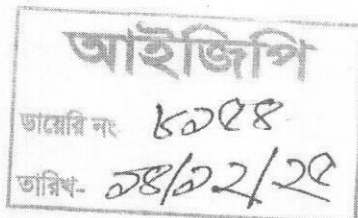 আইজিপি
ডায়েরি নং ৮১৫৪
তারিখ- ১৪/১২/২৫